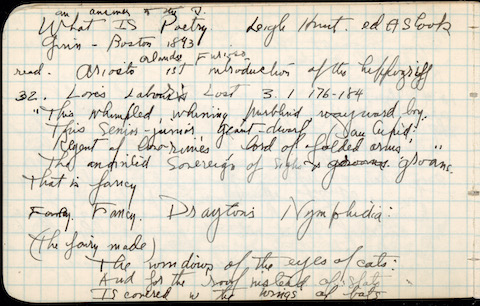 an answer to the Q.
What IS Poetry Leigh Hunt. ed A S Cook
Ginn - Boston 1893
Orlando Furioso
read. Ariosto 1st introduction of the hippogriff
32. Love's Labour's Lost 3. 1 176-184
"This whimpled, whining purblind wayward boy.
This Senior-junior, giant-dwarf, Dan Cupid!
Regent of love-rimes, lord of folded arms,
The anointed Sovereign of Sighs & groans groans."
That is fancy
Fancy. Fancy. Drayton's Nymphidia:
(the fairy made)
The windows of the eyes of cats:
And for the roof instead of slats
Is covered w the wings of bats